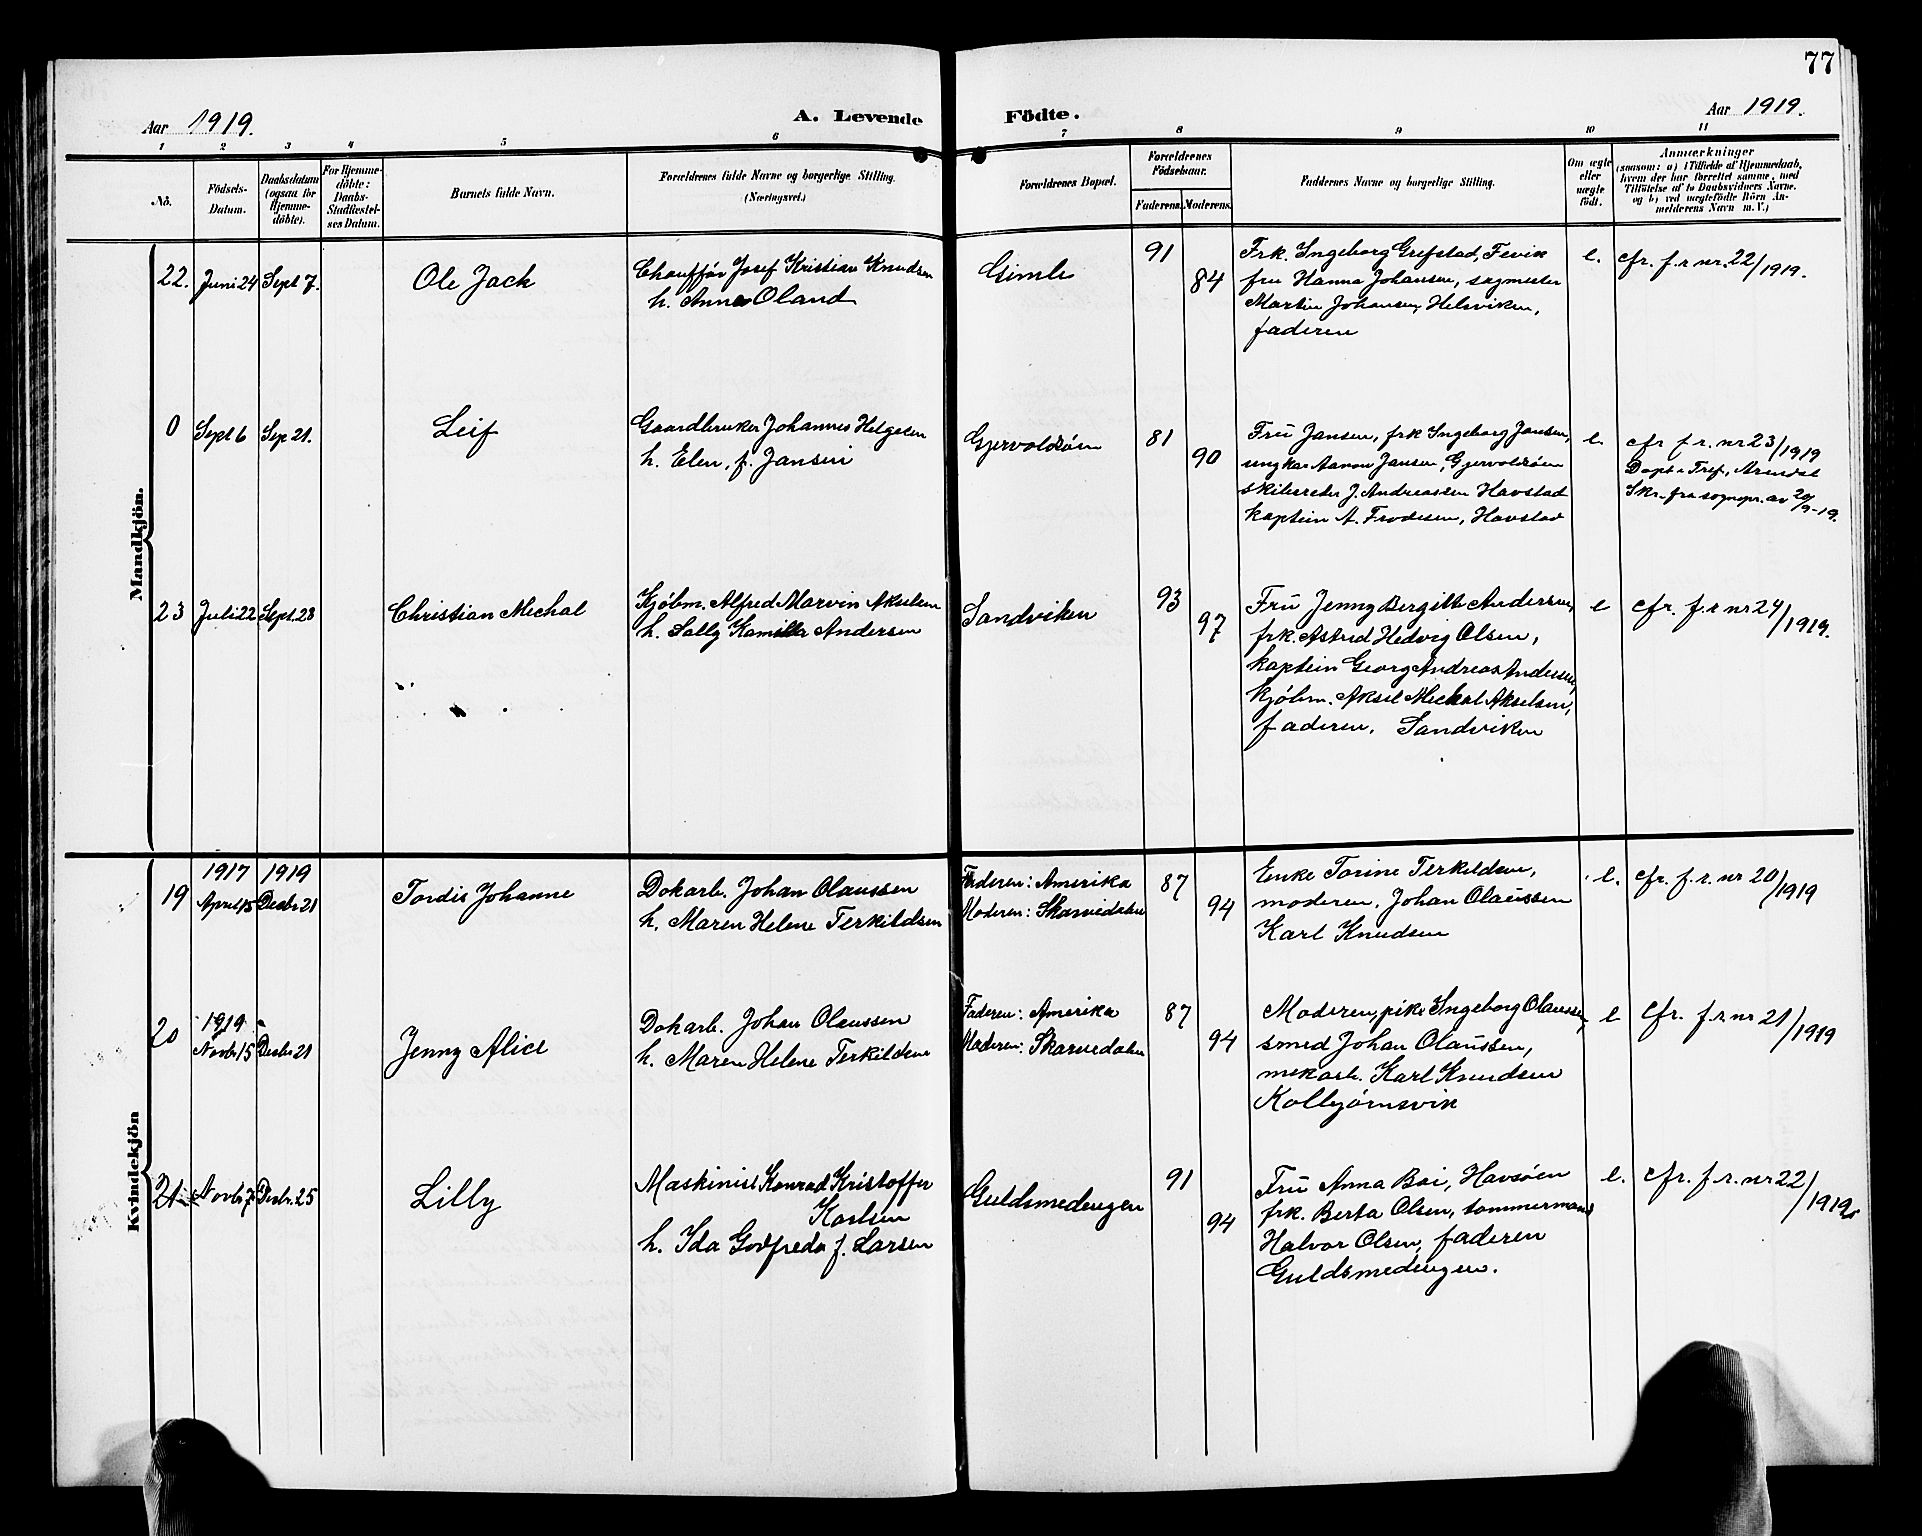 77
Aar 1919.
A. Levende Födte.
Aar 1919.
1 2 3 4 5 6 7 8 9 10 11
No.
Födsels-
Datum.
Daabsdatum
(ogsaa for
Hjemme-
döbte).
For Hjemme-
döbte:
Daabs-
Stadfæstel-
ses Datum.
Barnets fulde Navn.
Forældrenes fulde Navne og borgerlige Stilling.
(Næringsvei.)
Forældrenes Bopæl.
Forældrenes
Födselsaar.
Faderens. Moderens.
Faddernes Navne og borgerlige Stilling.
Om ægte
eller
uægte
födt.
Anmærkninger
(saasom: a) i Tilfælde af Hjemmedaab,
hvem der har forrettet samme, med
Tilföielse af to Daabsvidners Navne.
og b) ved uægtefödte Börn An-
melderens Navn m. V.)
Mandkjön.
22. Juni 24 Sept 7. Ole Jack
Chauffør Josef Kristian Knudsen
h. Anna Oland
Gimle
91
84
Frk. Ingeborg Grefstad, Fevik
fru Hanna Johansen, sagmester
Martin Johansen, Helsviken,
faderen
e.
cfr. f. r nr. 22/1919.
0 Sept 6 Sep 21. Leif
Gaardbruker Johannes Helgesen
h. Elen, f. Jansen
Gjervoldsøen
81
90
Fru Jansen, frk Ingeborg Jansen,
ungkar Aanon Jansen, Gjervoldsøen
skibsreder J. Andreassen Havstad
kaptein A. Frodesen, Havstad
e.
cfr f. r. nr 23/1919
Døpt i Tref., Arendal
Skr. fra sognepr. av 20/9-19.
23 Juli 22 Sept. 28 Christian Mechal
Kjøbm. Alfred Marvin Akselsen
h. Sally Kamilla Andersen
Sandviken
93
97
Fru Jenny Bergitte Andersen,
frk. Astrid Hedvig Olsen,
kaptein Georg Andreas Andersen,
kjøbm. Aksel Mechal Akselsen,
faderen, Sandviken
e
cfr. f. r nr 24/1919.
Kvindekjön
19 1917 April 15 1919 Desbr 21 Tordis Johanne
Dokarb. Johan Olaussen
h. Maren Helene Terkildsen
Faderen: Amerika
Moderen: Skarvedalen
87
94
Enke Torine Terkildsen,
moderen, Johan Olaussen
Karl Knudsen
e.
cfr. f. r. nr 20/1919
20 1919 Novbr. 15 Desbr 21 Jenny Alice
Dokarb. Johan Olaussen
h. Maren Helene Terkildsen
Faderen: Amerika
Moderen: Skarvedalen
87
94
Moderen, pike Ingeborg Olaussen,
smed Johan Olaussen,
mekarb. Karl Knudsen
Kolbjørnsvik
e
Cfr. f. r. nr 21/1919
21 Novbr 7 Desbr. 25 Lilly
Maskinist Konrad Kristoffer
Karlsen
h. Ida Godfreda f. Larsen
Guldsmedengen
91
94
Fru Anna Boi, Havsøen
frk. Berta Olsen, tømmermand
Halvor Olsen, faderen
Guldsmedengen.
e.
cfr. f. r. nr 22/1919